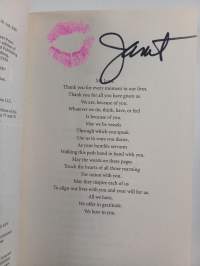 Janet
Thank you for every moment in our lives.
Thank you for all you have given us.
We are, because of you.
Whatever we do, think, have, or feel
Is because of you.
May we be vessels
Through which you speak.
Use us as your
As your humble servants
Walking this path hand in hand with you.
May the words on these pages
Touch the hearts of all those yearning
For union with you.
May they inspire each of us
To align our lives with you and your will for us.
All we have,
We offer in gratitude.
We bow to you.